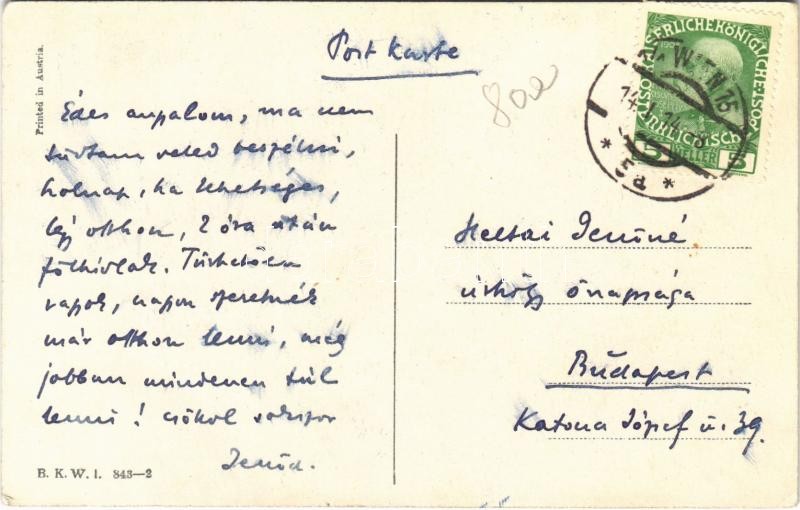 Post karte
Printed in Austria.
Édes anyalom, ma nem
tudtam veled beszélni,
holnap, ha lehetséges,
légy otthon, 2 óra után
fölhívlak. Tűrhetően
vagyok, nagyon szeretnék
már otthon lenni, még
jobban mindenen túl
lenni! csókol sokszor
Jenőd.
B. K. W. I. 843—2
800
KAISERLICHE KÖNIGLICHE
1908
HELLER 5
WIEN 75
14
* 5a *
Heltai Jenőné
úrhölgy őnagysága
Budapest
Katona József u. 39.